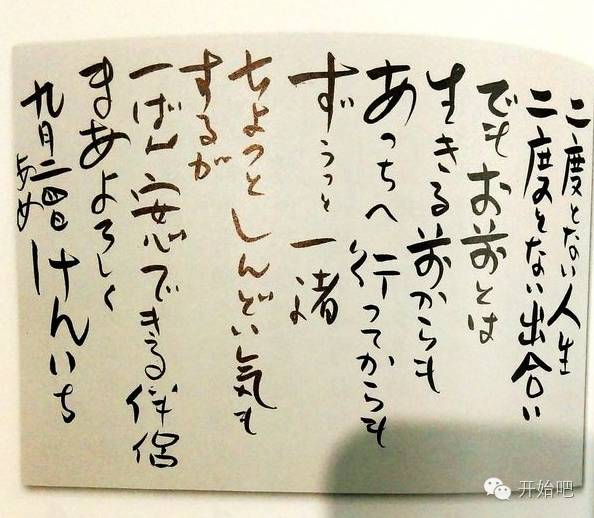 二度とない人生
二度とない出合い
でもお前とは
生きる前からも
あっちへ行ってからも
ずうっと一緒よ
ちょっとしんどい気も
するが
一ばん安心できる伴侶
まあよろしく
九月二四日
けんいち
开始吧